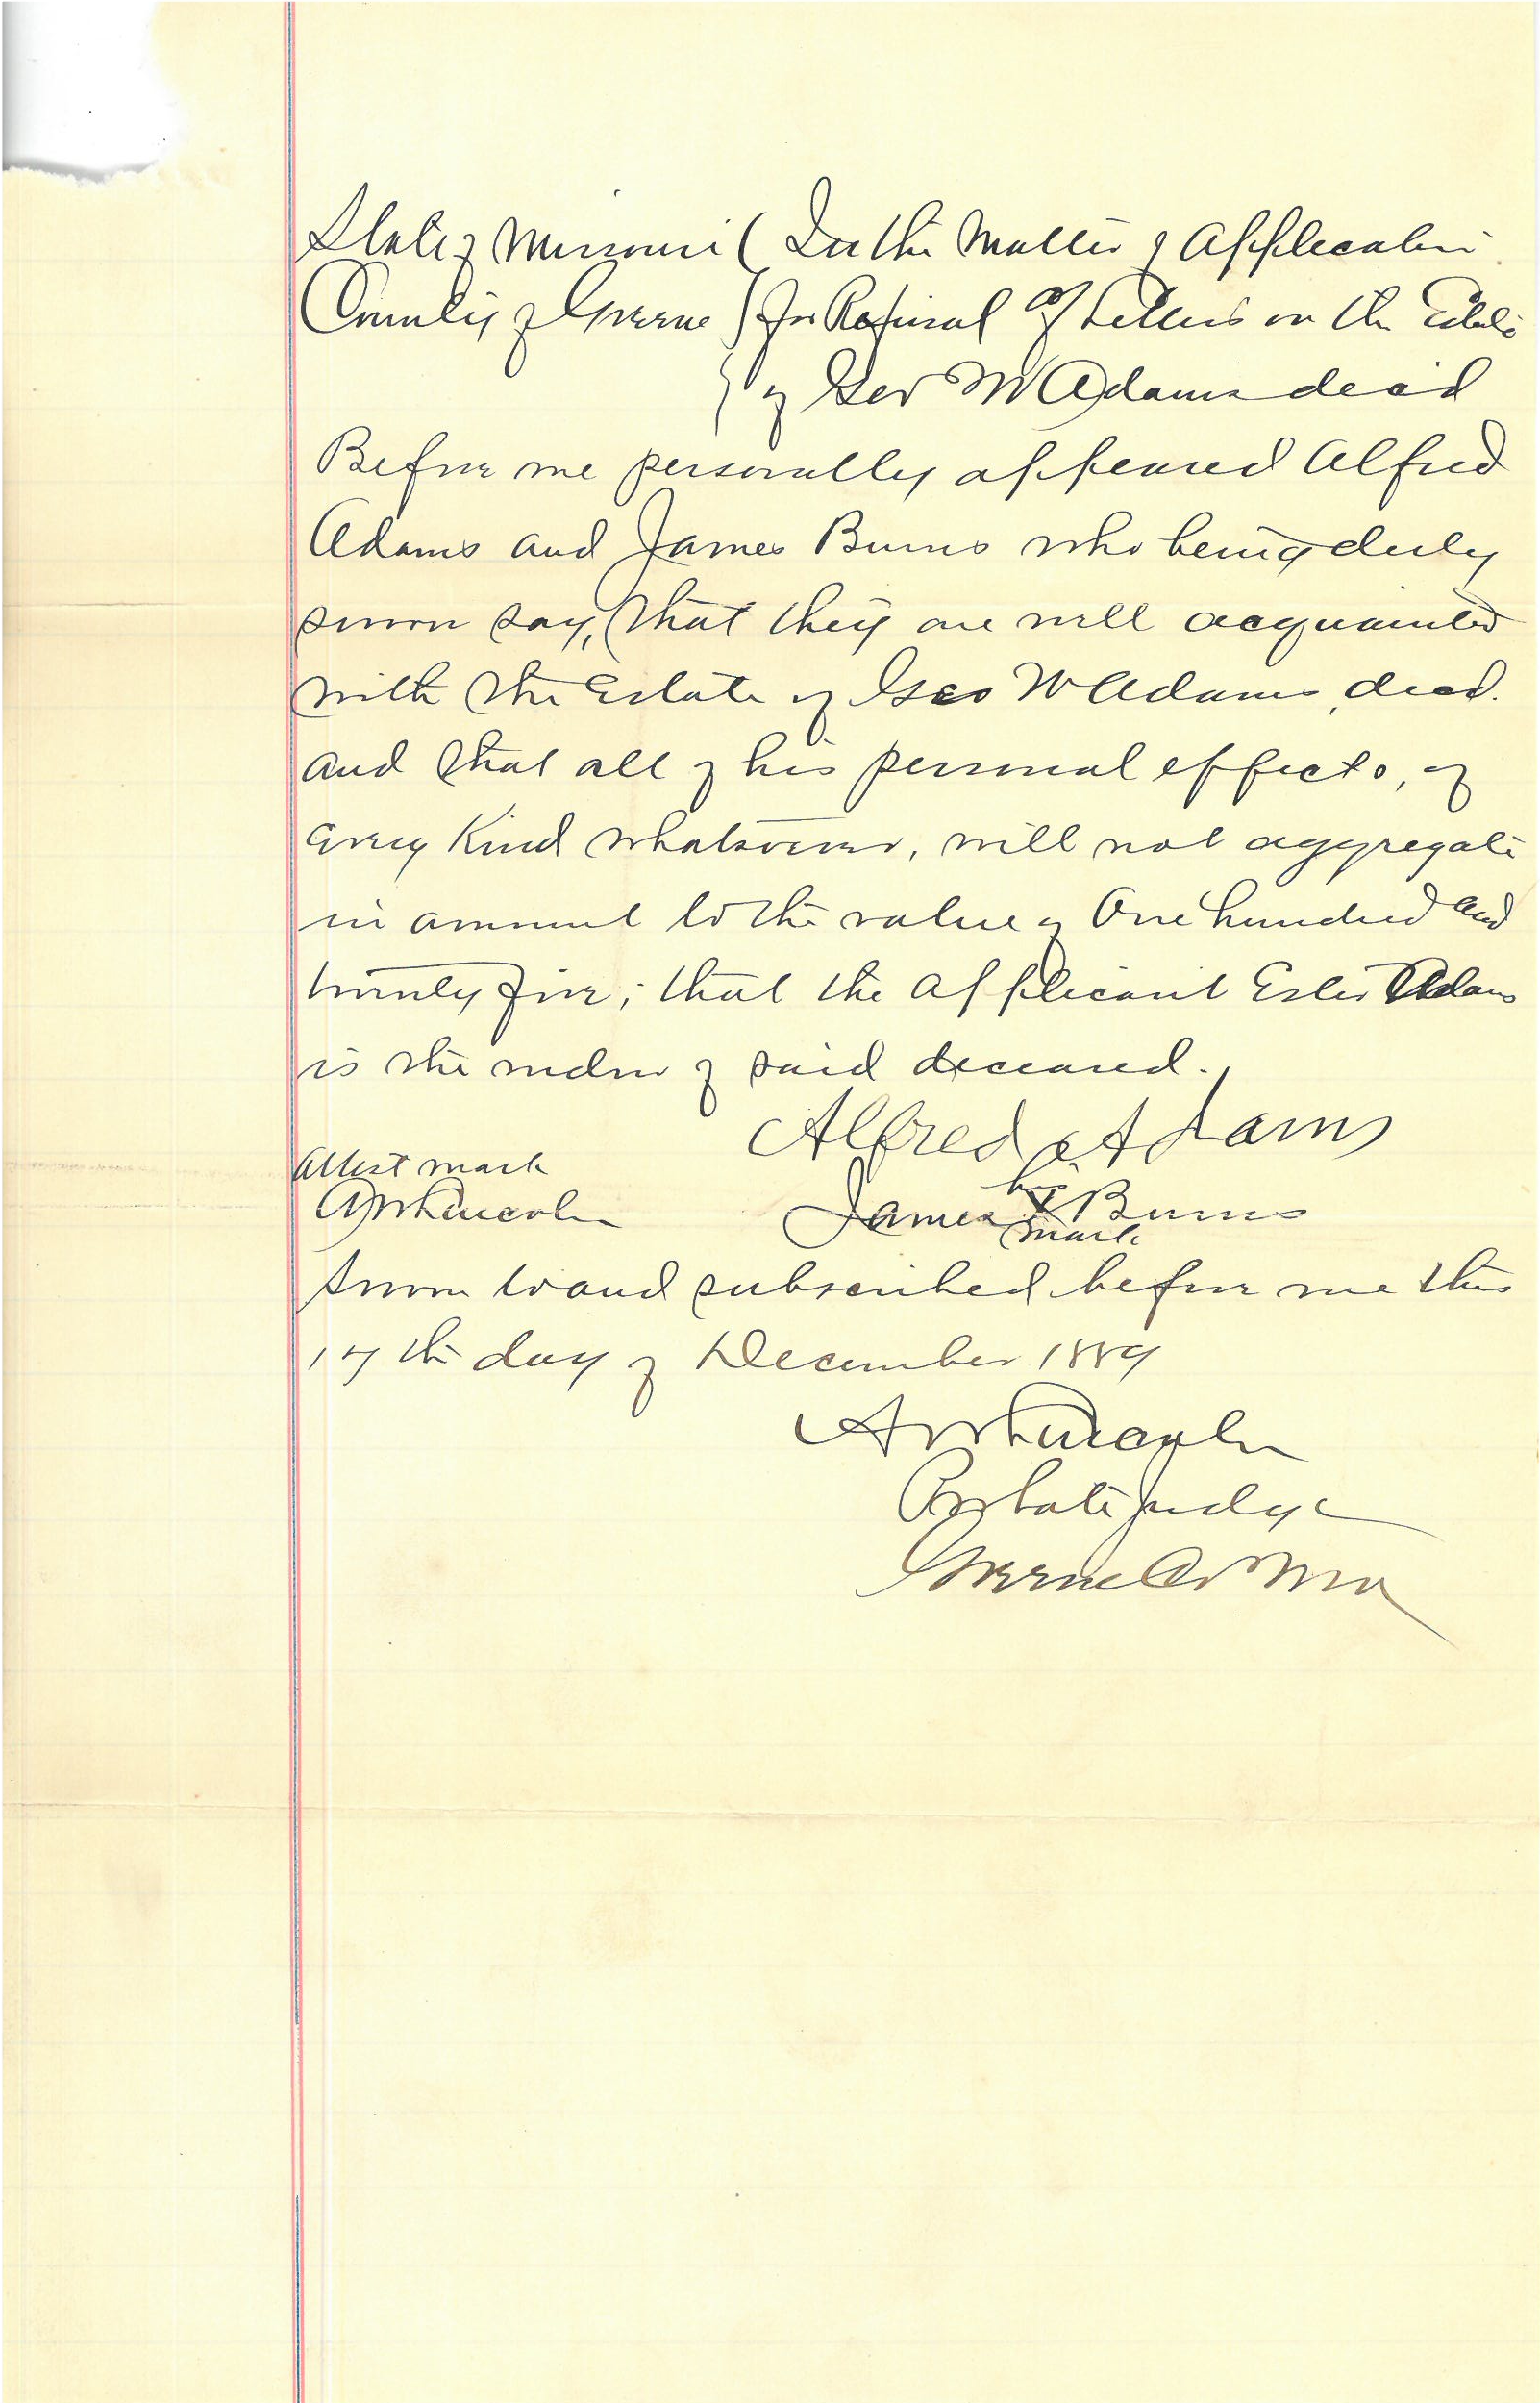 State of Missouri ( In the Matter of Application
County of Greene ) for Refusal of Letters on the Estate
} of Geo W Adams decd
Before me personally appeared Alfred
Adams and James Burns who being duly
sworn say, that they are well acquainted
with the Estate of Geo W Adams, decd.
and that all of his personal effects, of
every Kind whatsoever, will not aggregate
in amount to the value of One hundred and
twenty five; that the applicant Ester Adams
is the widow of said deceased.
Alfred Adams
Attest mark
his
A W Lincoln James X Burns
mark
Sworn to and subscribed before me this
17th day of December 1889
A W Lincoln
Probate Judge
Greene Co Mo